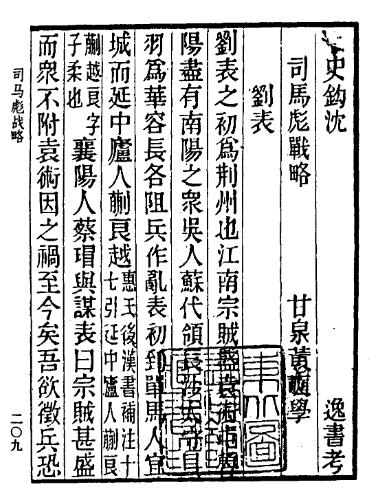 史鈎沈 逸書考
司馬彪戰略 甘泉黄奭學
劉表
劉表之初爲荆州也江南宗賊盛袁術屯魯
陽盡有南陽之衆吳人蘇代領長沙太守貝
羽爲華容長各阻兵作亂表初到單馬入宜
城而延中廬人蒯良越
惠氏後漢書補注十
七引延中廬人蒯良
蒯越良字
子柔也
襄陽人蔡瑁與謀表曰宗賊甚盛
而衆不附袁術因之禍至今矣吾欲徵兵恐
司马彪战略
二〇九